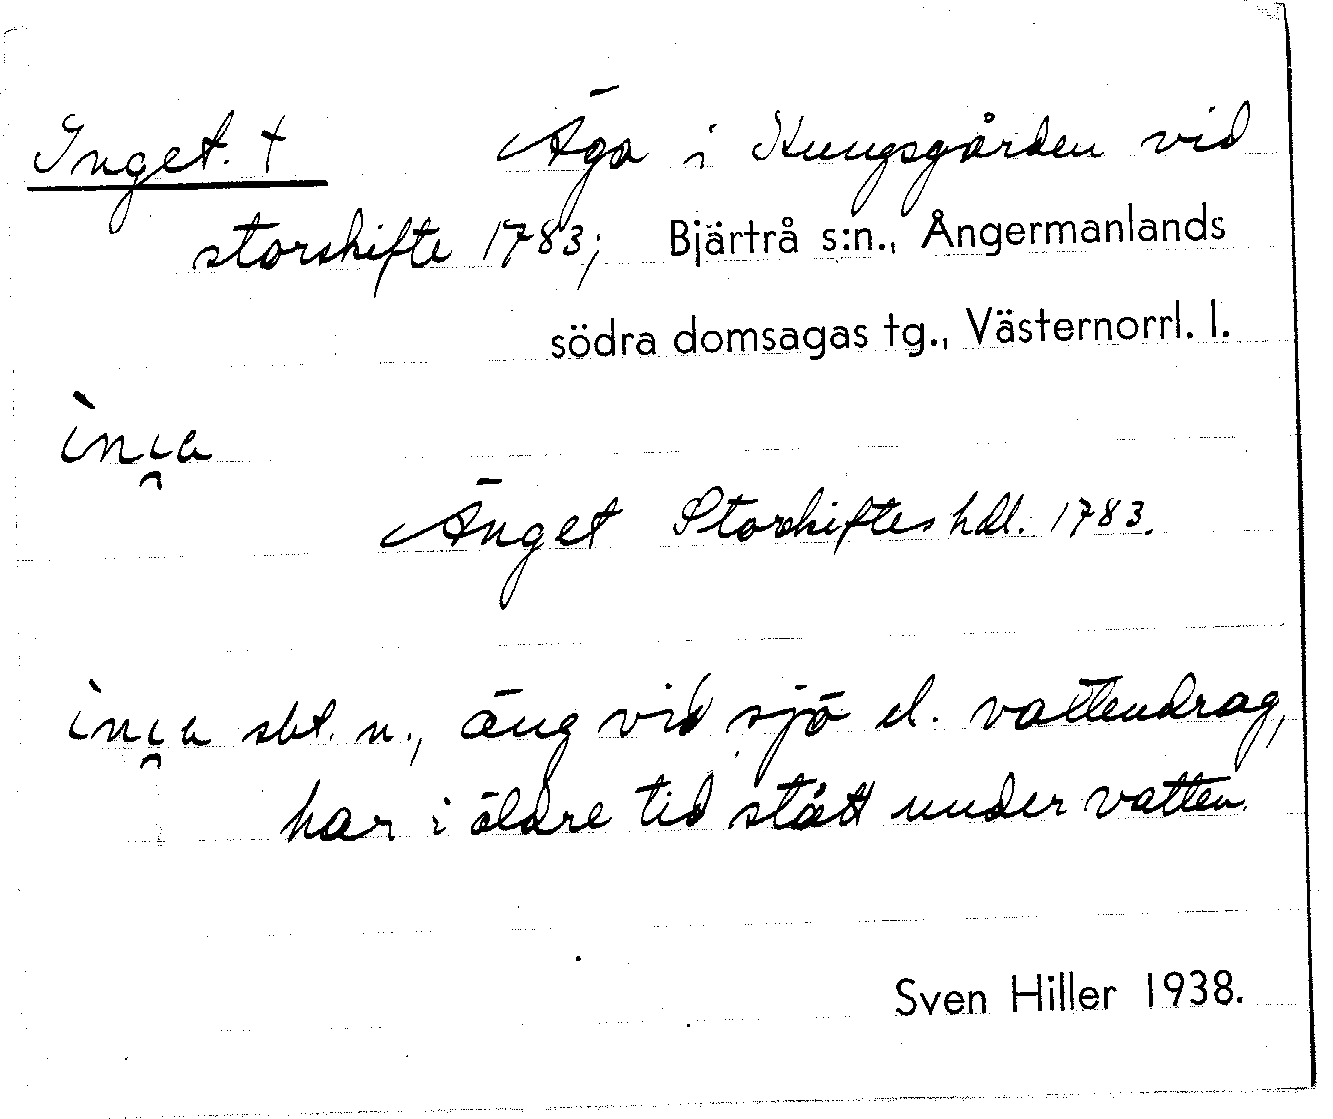 Inget. †
Äga i Kungsgården vid
storskifte 1783; Bjärtrå s:n., Ångermanlands
södra domsagas tg., Västernorrl. l.
Änget Storskifteshdl. 1783.
sbt. n., äng vid sjö el. vattendrag,
har i äldre tid stått under vatten.
Sven Hiller 1938.